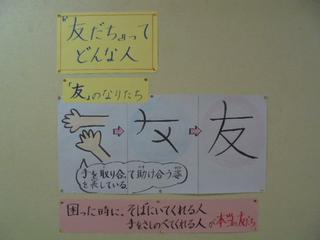 友だちって
どんな人
「友」のなりたち
友
手を取り合って助け合う姿
を表している。
困った時に、そばにいてくれる人
手をさしのべてくれる人が本当の友だち